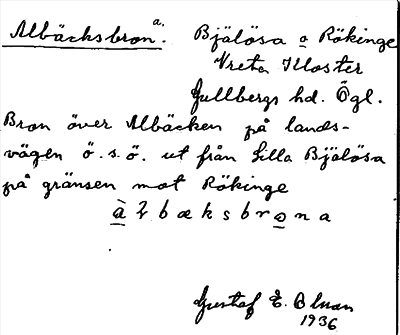 Albäcksbron a.
Bjälösa o Rökinge
Vreta Kloster
Gullbergs hd. Ögl.
Bron över Albäcken på lands-
vägen ö.s.ö. ut från Lilla Bjälösa
på gränsen mot Rökinge
àlbæksbrona
Gustaf E.
1936